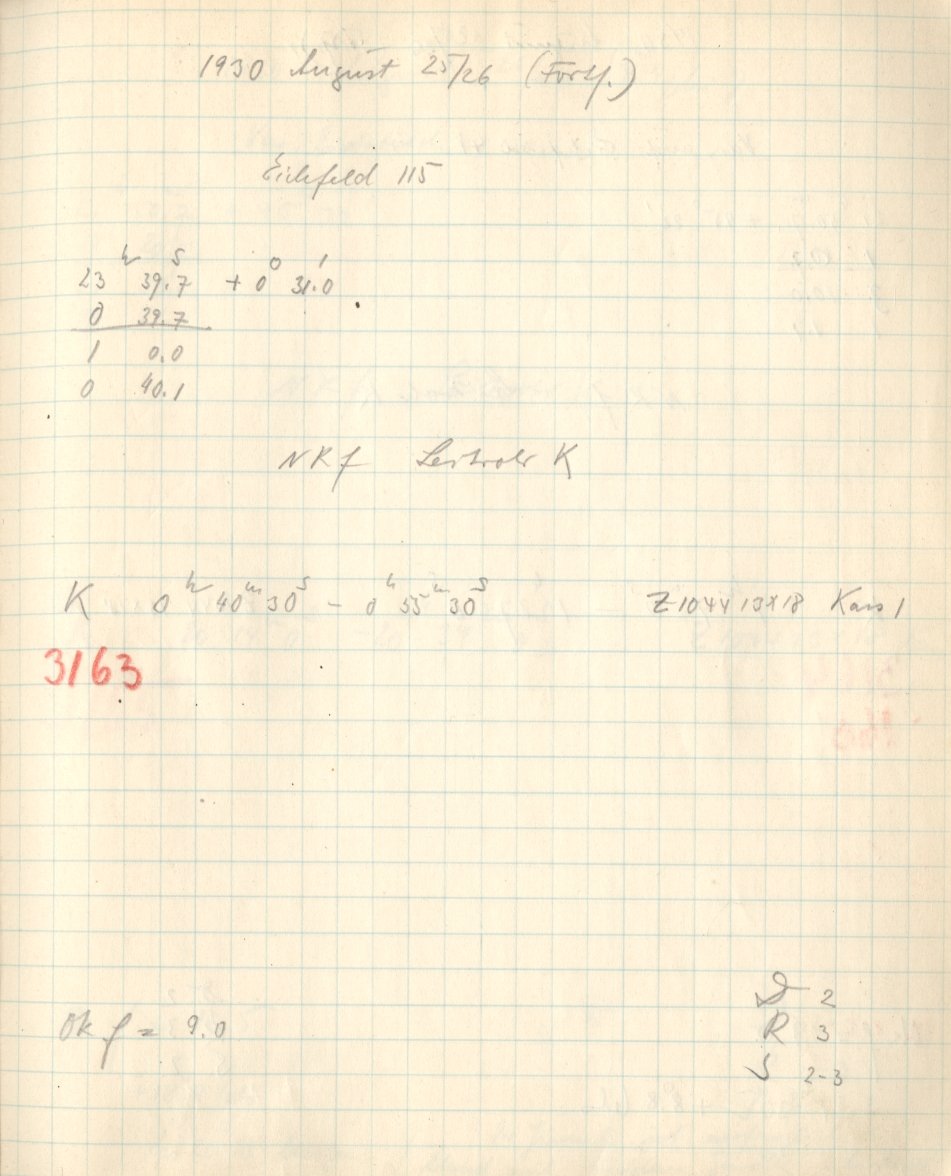 1930 August 25/26 (Fortf.)
Eichfeld 115
h s ° '
23 39.7 + 0 31.0
0 39.7
1 0.0
0 40.1
NRf K
K 0h 40m 30s – 0h 55m 30s Z1044 13x18 Kass 1
3163
Ok f = 9.0
D 2
R 3
S 2-3